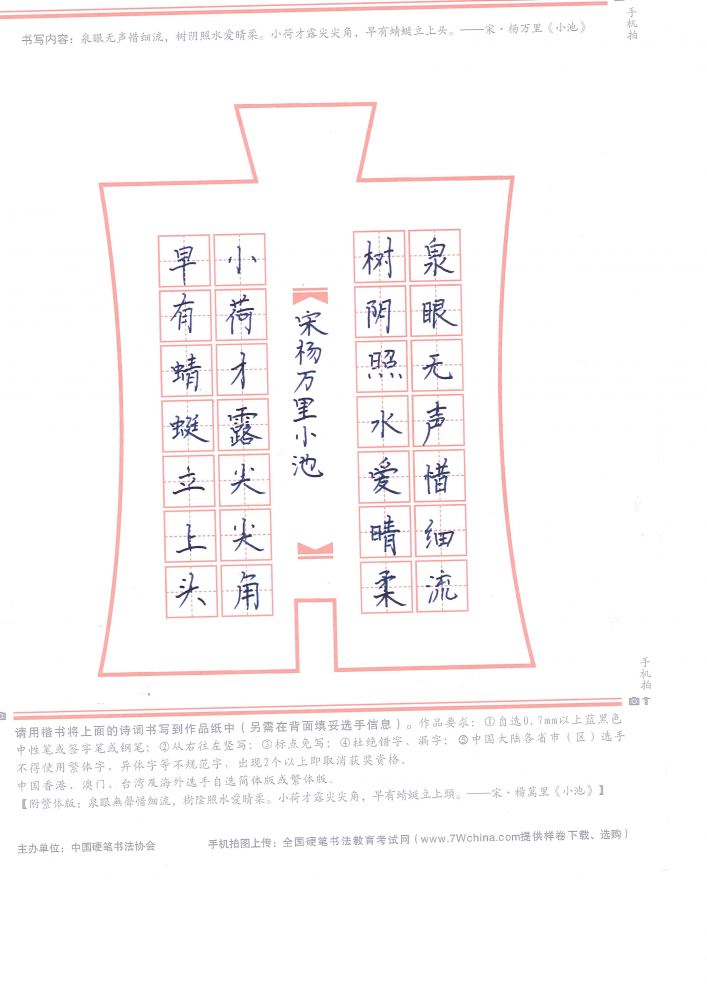 书写内容：泉眼无声惜细流，树阴照水爱晴柔。小荷才露尖尖角，早有蜻蜓立上头。——宋·杨万里《小池》
手机拍
泉眼无声惜细流
树阴照水爱晴柔
宋杨万里小池
小荷才露尖尖角
早有蜻蜓立上头
手机拍
请用楷书将上面的诗词书写到作品纸中（另需在背面填妥选手信息）。作品要求：①自选0.7mm以上蓝黑色
中性笔或签字笔或钢笔；②从右往左竖写；③标点免写；④杜绝错字、漏字；⑤中国大陆各省市（区）选手
不得使用繁体字、异体字等不规范字，出现2个以上即取消获奖资格。
中国香港、澳门、台湾及海外选手自选简体版或繁体版。
【附繁体版：泉眼無聲惜细流，樹陰照水爱晴柔。小荷才露尖尖角，早有蜻蜓立上頭。——宋·楊萬里《小池》】
主办单位：中国硬笔书法协会
手机拍图上传：全国硬笔书法教育考试网（www.7Wchina.com提供样卷下载、选购）